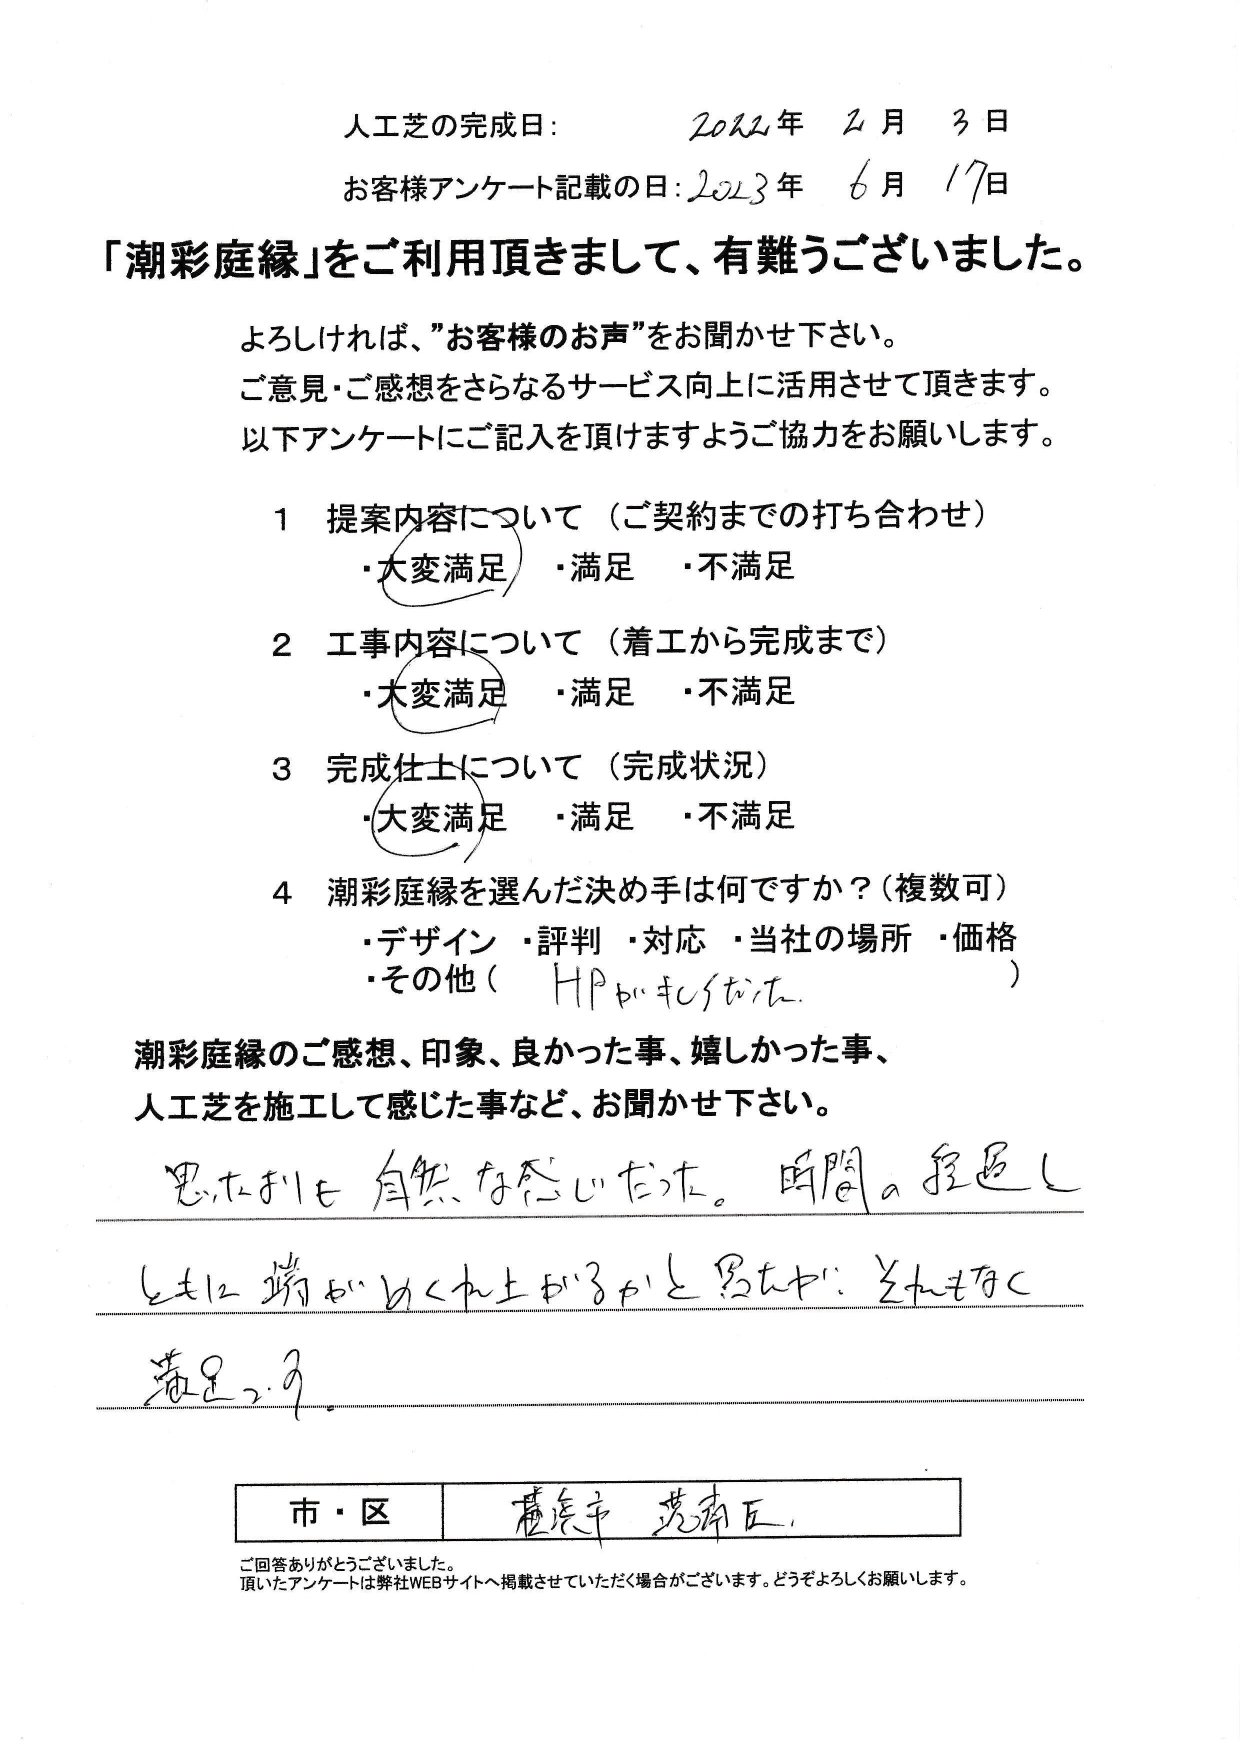 人工芝の完成日: 2022年 2月 3日
お客様アンケート記載の日:2023年 6月 17日
「潮彩庭縁」をご利用頂きまして、有難うございました。
よろしければ、”お客様のお声”をお聞かせ下さい。
ご意見・ご感想をさらなるサービス向上に活用させて頂きます。
以下アンケートにご記入を頂けますようご協力をお願いします。
1 提案内容について（ご契約までの打ち合わせ）
・大変満足 ・満足 ・不満足
2 工事内容について（着工から完成まで）
・大変満足 ・満足 ・不満足
3 完成仕上について（完成状況）
・大変満足 ・満足 ・不満足
4 潮彩庭縁を選んだ決め手は何ですか？（複数可）
・デザイン ・評判 ・対応 ・当社の場所 ・価格
・その他（ HPが だった. ）
潮彩庭縁のご感想、印象、良かった事、嬉しかった事、
人工芝を施工して感じた事など、お聞かせ下さい。
思ったよりも 自然な感じだった。 時間の経過と
ともに 端がめくれ上がるかと思ったが、それもなく
満足です。
市・区 横浜市 港南区.
ご回答ありがとうございました。
頂いたアンケートは弊社WEBサイトへ掲載させていただく場合がございます。どうぞよろしくお願いします。